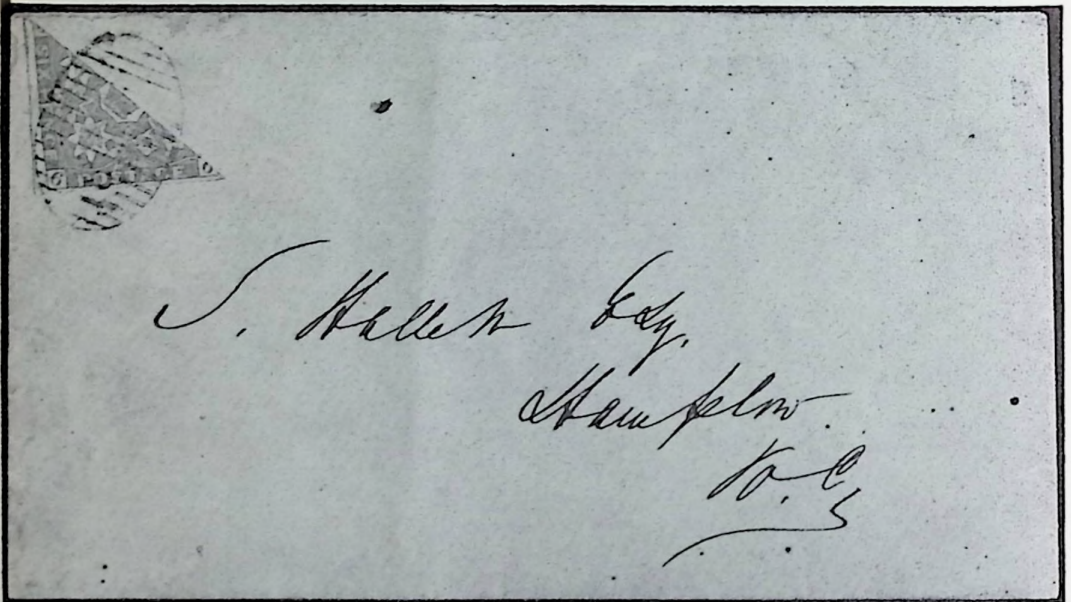 POSTAGE
S. Hallett Esq.
Hampton
K.C.